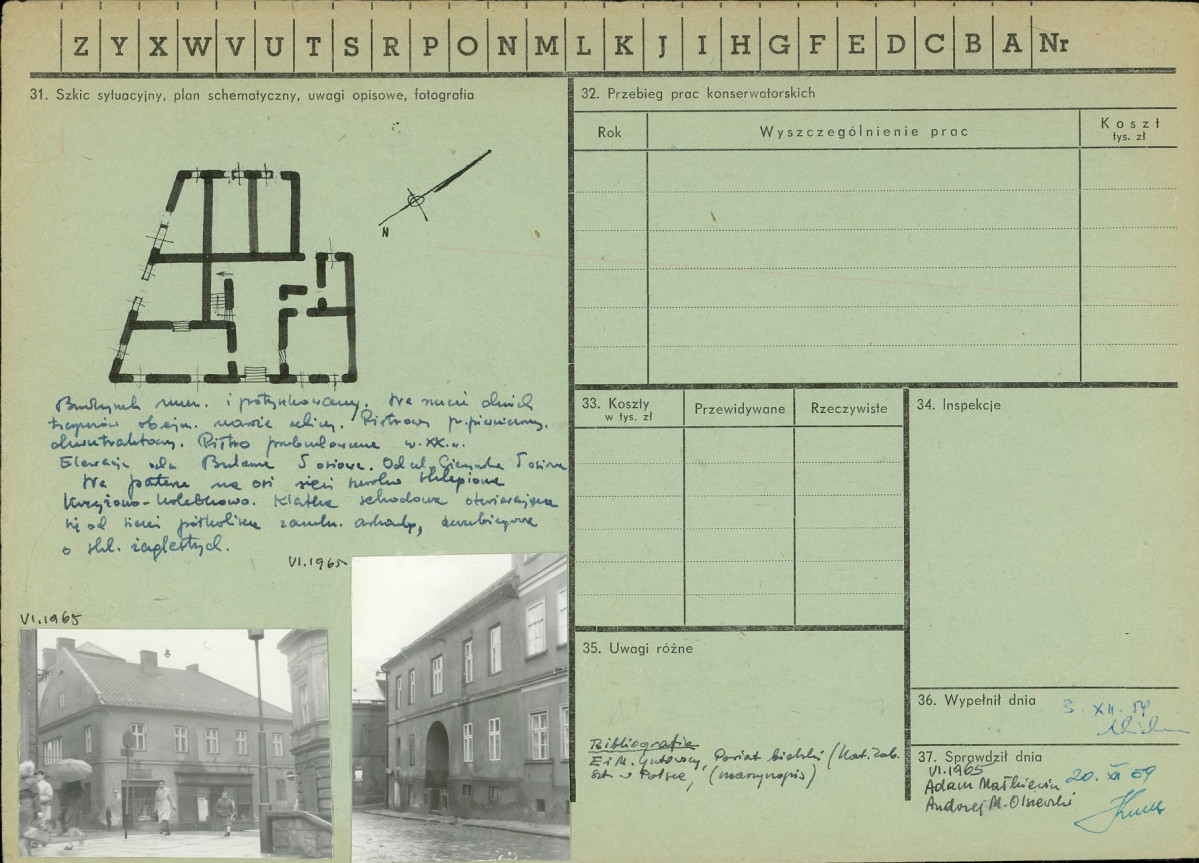 Z Y X W V U T S R P O N M L K J I H G F E D C B A Nr
31. Szkic sytuacyjny, plan schematyczny, uwagi opisowe, fotografia
N
Budynek mur. i potynkowany. Na rzucie dwóch
trapezów obejm. ulicy. Piętrowy p. piwniczony.
dwutraktowy. Piętro przebudowane w. XX.
Elewacja 5 osiowa. Od ul. 5 osiowa
Na parterze na osi sieni sklepiona
krzyżowo-kolebkowo. Klatka schodowa otwierająca
się od sieni półkoliście zamkn. arkadą, dwubiegowa
o skl. żaglastych.
VI.1965
VI.1965
32. Przebieg prac konserwatorskich
Rok
Wyszczególnienie prac
Koszt
tys. zł
33. Koszty
w tys. zł
Przewidywane
Rzeczywiste
34. Inspekcje
35. Uwagi różne
Bibliografia
E i M. Gutowscy, Powiat bielski (Kat. Zab.
Szt. w Polsce, (maszynopis)
36. Wypełnił dnia
3. XII. 59
37. Sprawdził dnia
VI.1965
20. XII 59
Adam Małkiewicz
Andrzej M. Olszewski